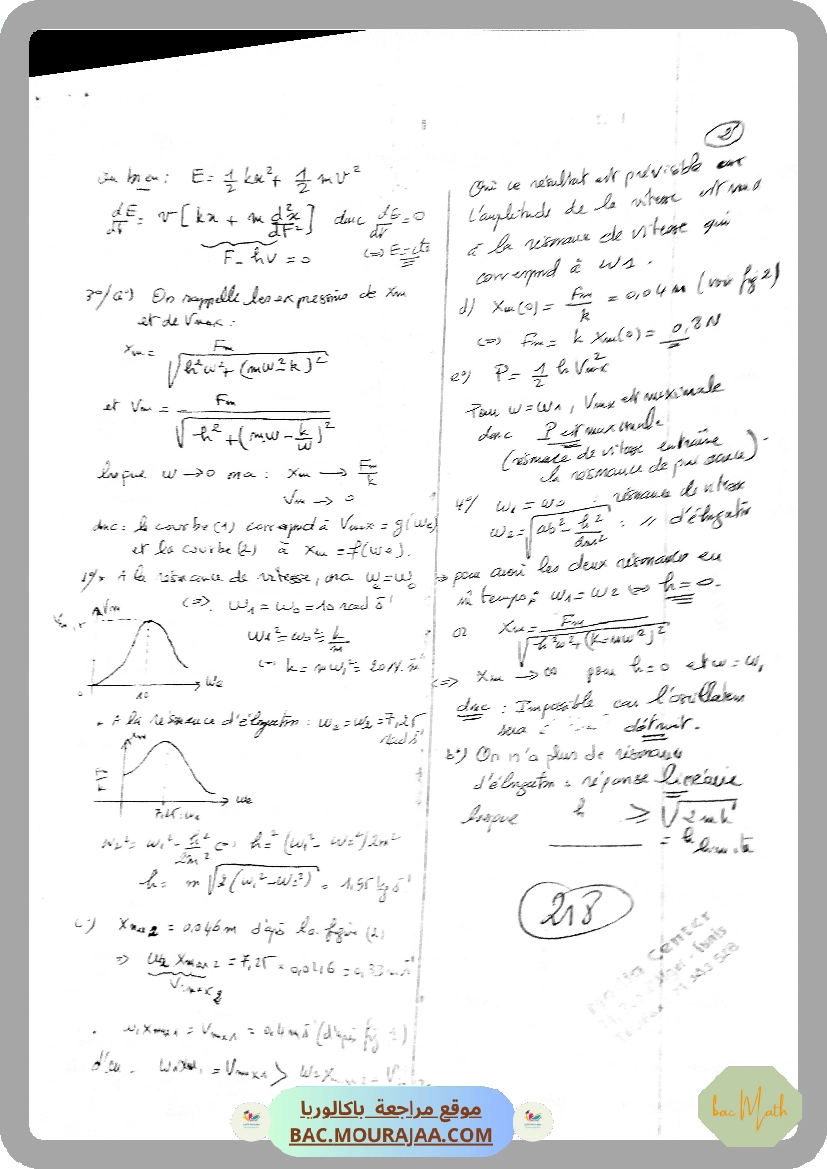 2
ou bien : E = 1/2 kx² + 1/2 mv²
dE/dt = v [kx + m d²x/dt²] donc dE/dt = 0
F - hv = 0 <=> E = cte
3°/a°) On rappelle les expressions de Xm
et de Vmax :
Xm = Fm / √(h²ω² + (mω² - k)²)
et Vm = Fm / √(h² + (mω - k/ω)²)
lorsque ω → 0 on a : Xm → Fm/k
Vm → 0
donc : la courbe (1) correspond à Vmax = g(ωe)
et la courbe (2) à Xm = f(ωe).
A la résonance de vitesse, on a ωe = ω0
<=> ω1 = ω0 = 10 rad s⁻¹
Vm
ω1² = ω0² = k/m
<=> k = mω1² = 20 N.m⁻¹
0 10 ωe
. A la résonance d'élongation : ωe = ω2 = 7,25
rad s⁻¹
Xm
Fm/k
7,25 ωe
ω2² = ω1² - h²/2m² <=> h² = (ω1² - ω2²) 2m²
h = m √(2(ω1² - ω2²)) = 1,95 kg s⁻¹
c°) Xmax2 = 0,046 m d'après la figure (2)
=> ω2 Xmax2 = 7,25 × 0,046 = 0,33 m s⁻¹
Vmax2
. ω1 Xmax1 = Vmax1 = 0,4 m s⁻¹ (d'après fig 1)
= Vmax1 > ω2 Xmax2 =
Oui ce résultat est prévisible car
l'amplitude de la vitesse est max
à la résonance de vitesse qui
correspond à ω1.
d) Xm(0) = Fm/k = 0,04 m (voir fig 2)
<=> Fm = k Xm(0) = 0,8 N
e°) P = 1/2 h Vmax²
Pour ω = ω1, Vmax est maximale
donc P est maximale
(résonance de vitesse entraîne
la résonance de puissance).
4°/ ω1 = ω0 : résonance de vitesse
ω2 = √(ω0² - h²/2m²) : // d'élongation
=> pour avoir les deux résonances en
m temps : ω1 = ω2 <=> h = 0.
or Xm = Fm / √(h²ω² + (k - mω²)²)
<=> Xm → ∞ pour h = 0 et ω = ω1
donc : Impossible car l'oscillateur
sera détruit.
b°) On n'a plus de résonance
d'élongation = réponse linéaire
lorsque h ≥ √(2mk)
= h limite
218
Center
Tunis
موقع مراجعة باكالوريا
BAC.MOURAJAA.COM
bac Math